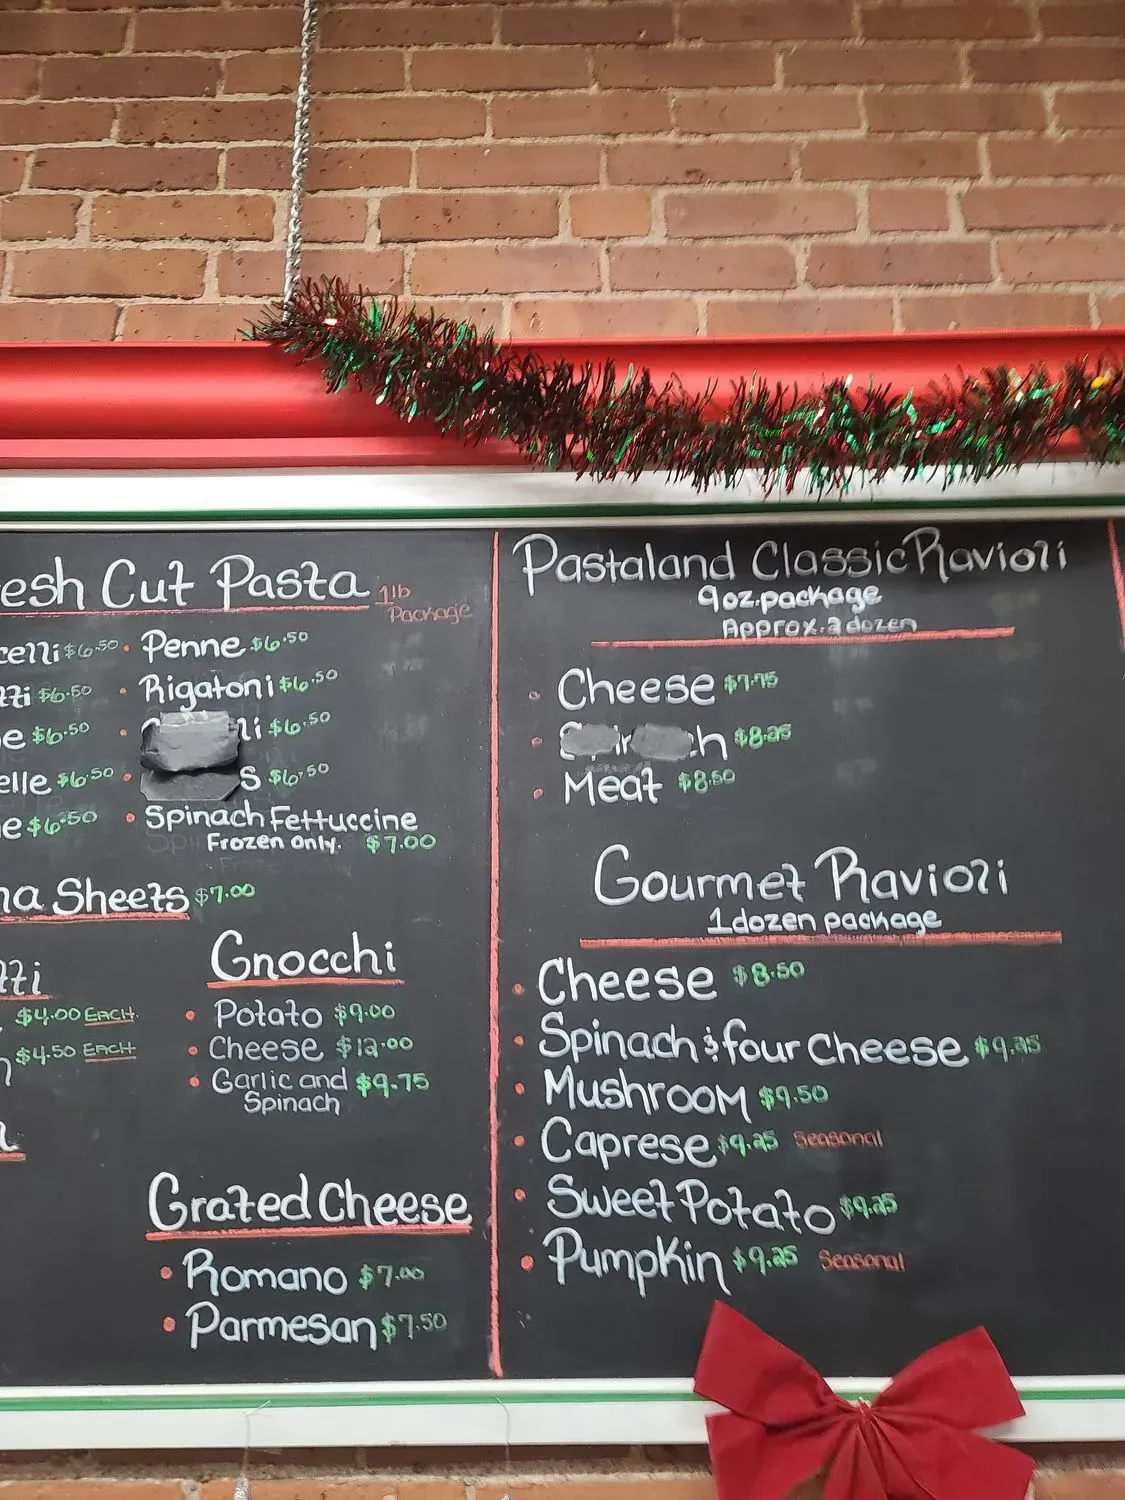 esh Cut Pasta 1lb Package
celli $6.50 • Penne $6.50
zzi $6.50 • Rigatoni $6.50
e $6.50 • li $6.50
elle $6.50 • s $6.50
e $6.50 • Spinach Fettuccine
Frozen only. $7.00
na Sheets $7.00
$4.00 EACH
$4.50 EACH
Gnocchi
• Potato $9.00
• Cheese $12.00
• Garlic and $9.75
Spinach
Grated Cheese
• Romano $7.00
• Parmesan $7.50
Pastaland Classic Ravioli
9oz. package
Approx. 2 dozen
• Cheese $7.75
• $8.25
• Meat $8.50
Gourmet Ravioli
1 dozen package
• Cheese $8.50
• Spinach & four Cheese $9.25
• Mushroom $9.50
• Caprese $9.25 Seasonal
• Sweet Potato $9.25
• Pumpkin $9.25 Seasonal